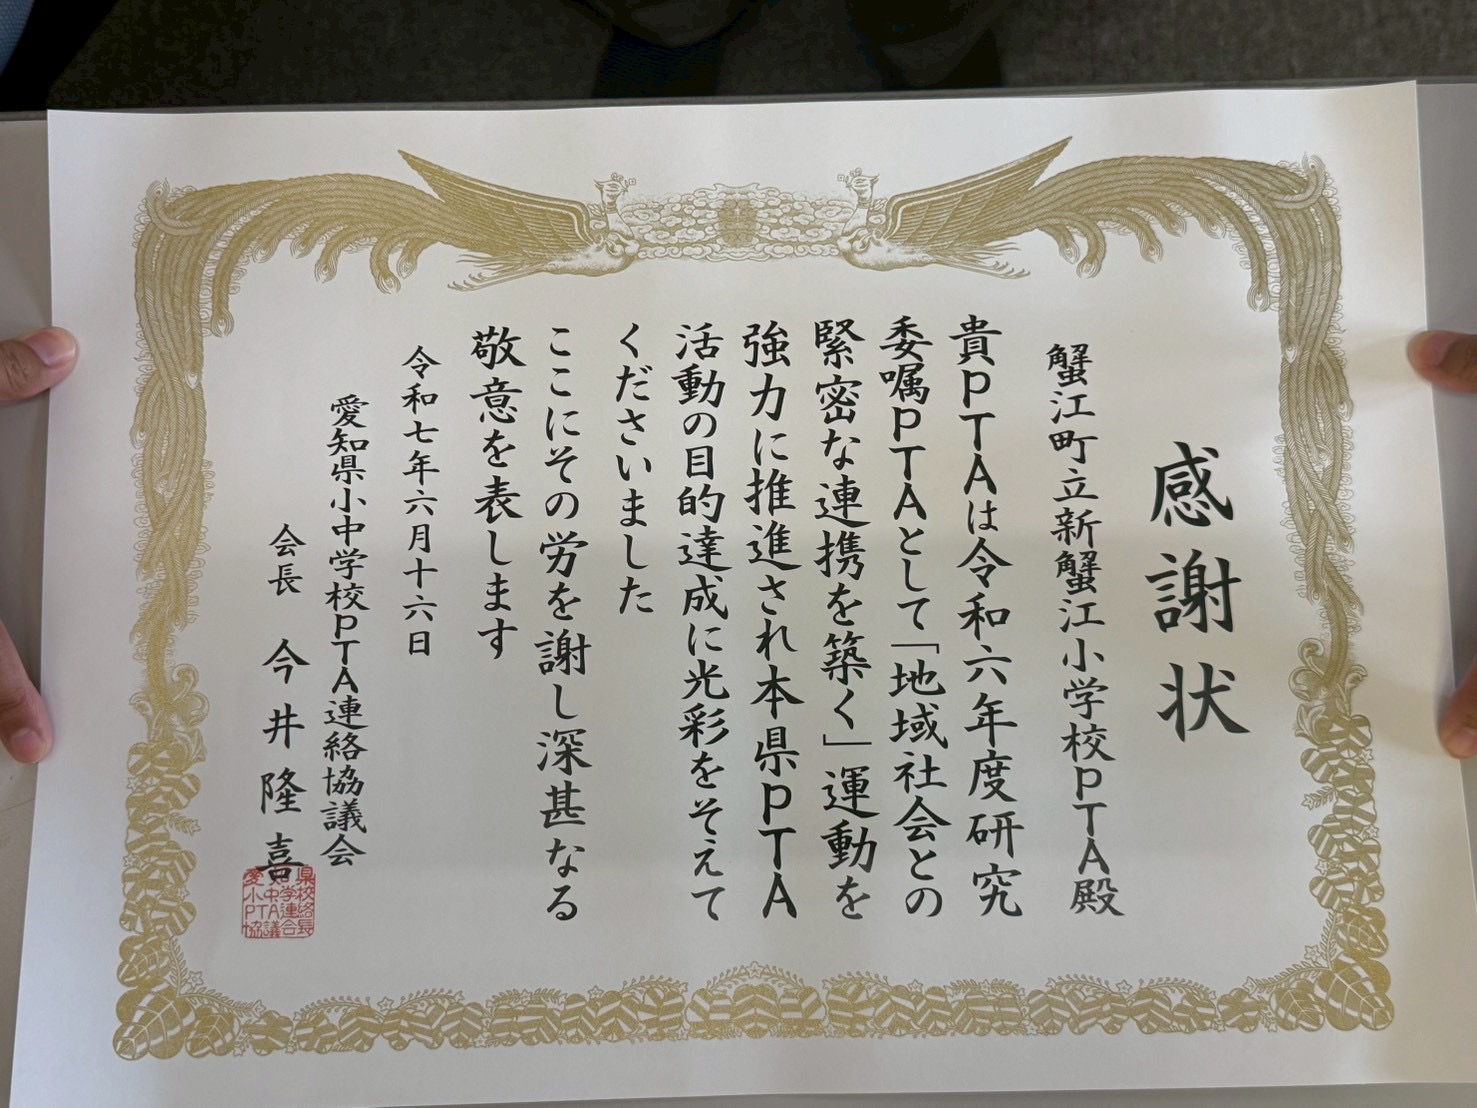 感謝状
蟹江町立新蟹江小学校PTA殿
貴PTAは令和六年度研究
委嘱PTAとして「地域社会との
緊密な連携を築く」運動を
強力に推進され本県PTA
活動の目的達成に光彩をそえて
くださいました
ここにその労を謝し深甚なる
敬意を表します
令和七年六月十六日
愛知県小中学校PTA連絡協議会
会長 今井隆喜